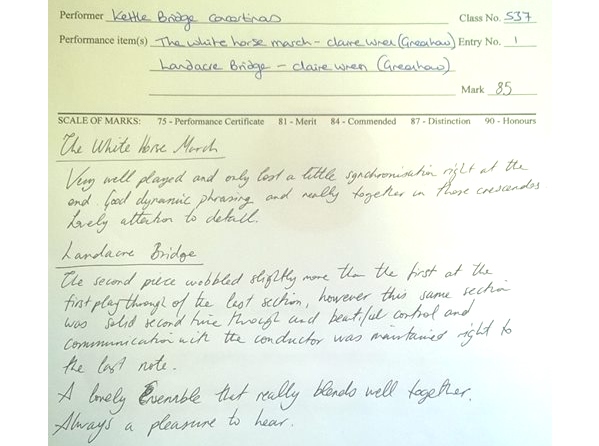 Performer Kettle Bridge concertinas Class No. 537
Performance item(s) The white horse march - claire wren (Greenhow) Entry No. 1
Landacre Bridge - claire wren (Greenhow)
Mark 85
SCALE OF MARKS: 75 - Performance Certificate 81 - Merit 84 - Commended 87 - Distinction 90 - Honours
The White Horse March
Very well played and only lost a little synchronisation right at the
end. Good dynamic phrasing and really together in those crescendos
Lovely attention to detail.
Landacre Bridge
The second piece wobbled slightly more than the first at the
first play through of the last section, however this same section
was solid second time through and beautiful control and
communication with the conductor was maintained right to
the last note.
A lovely Ensemble that really blends well together.
Always a pleasure to hear.